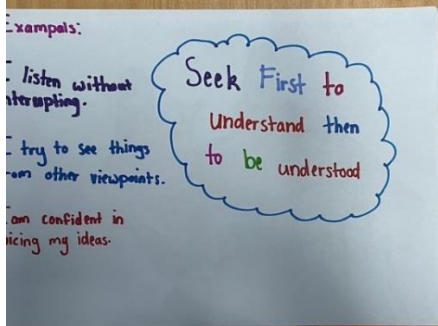 Exampals:
I listen without
nterupting.
I try to see things
om other viewpoints.
I am confident in
icing my ideas.
Seek First to
understand then
to be understood